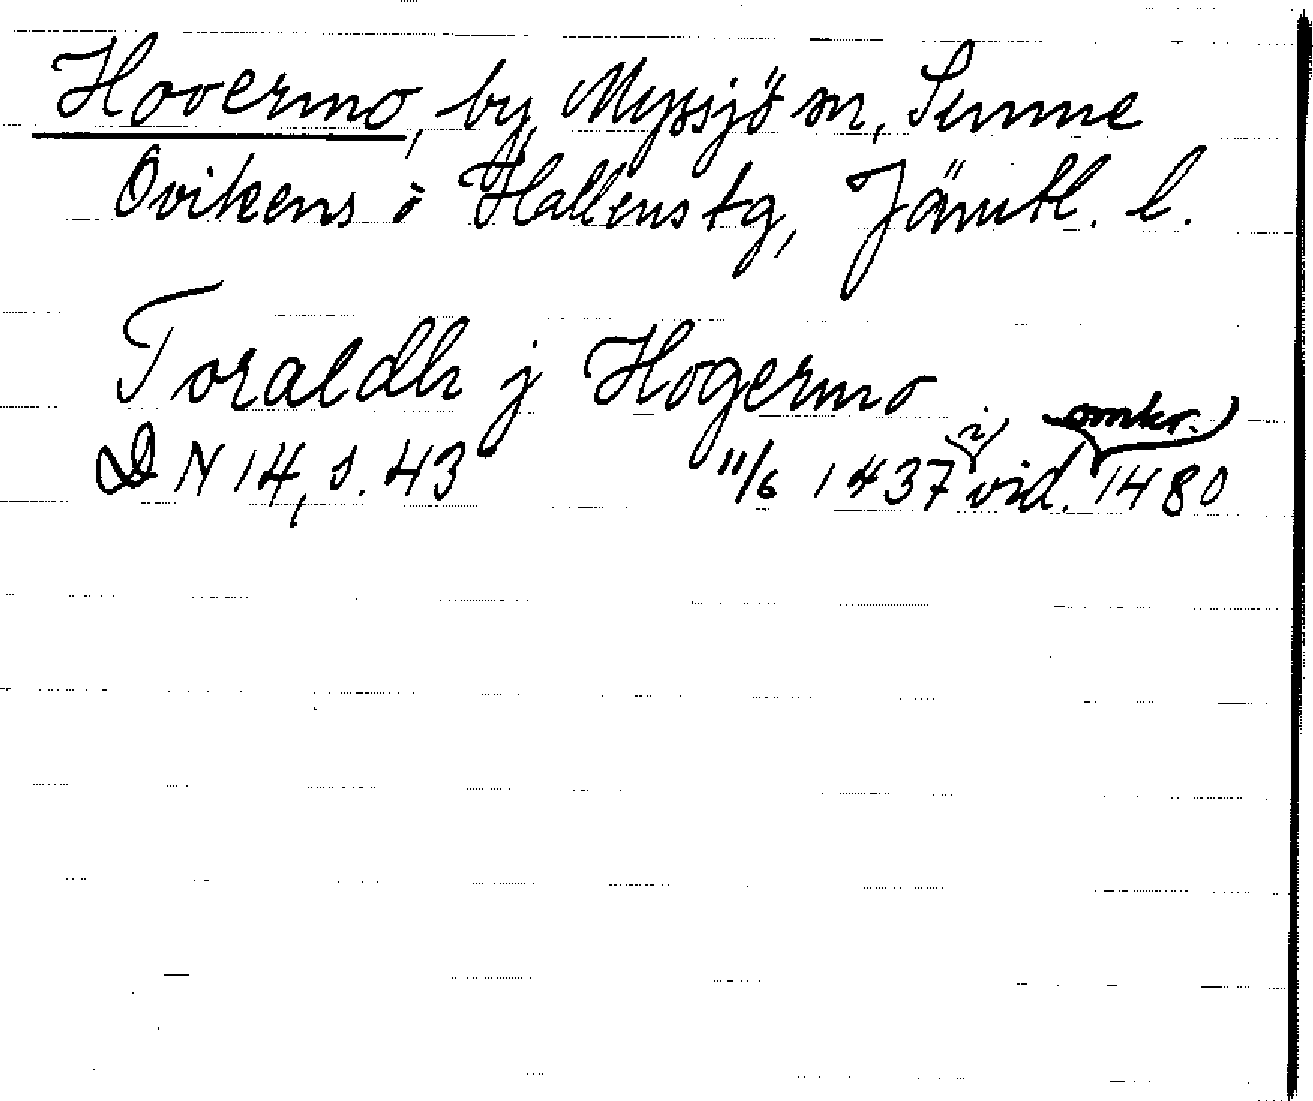 Hovermo, by, Myssjö sn, Sunne
Ovikens o Hallens tg, Jämtl. l.
Toraldh j Hogermo
DN 14, s. 43 11/6 1437 i vid. omkr. 1480